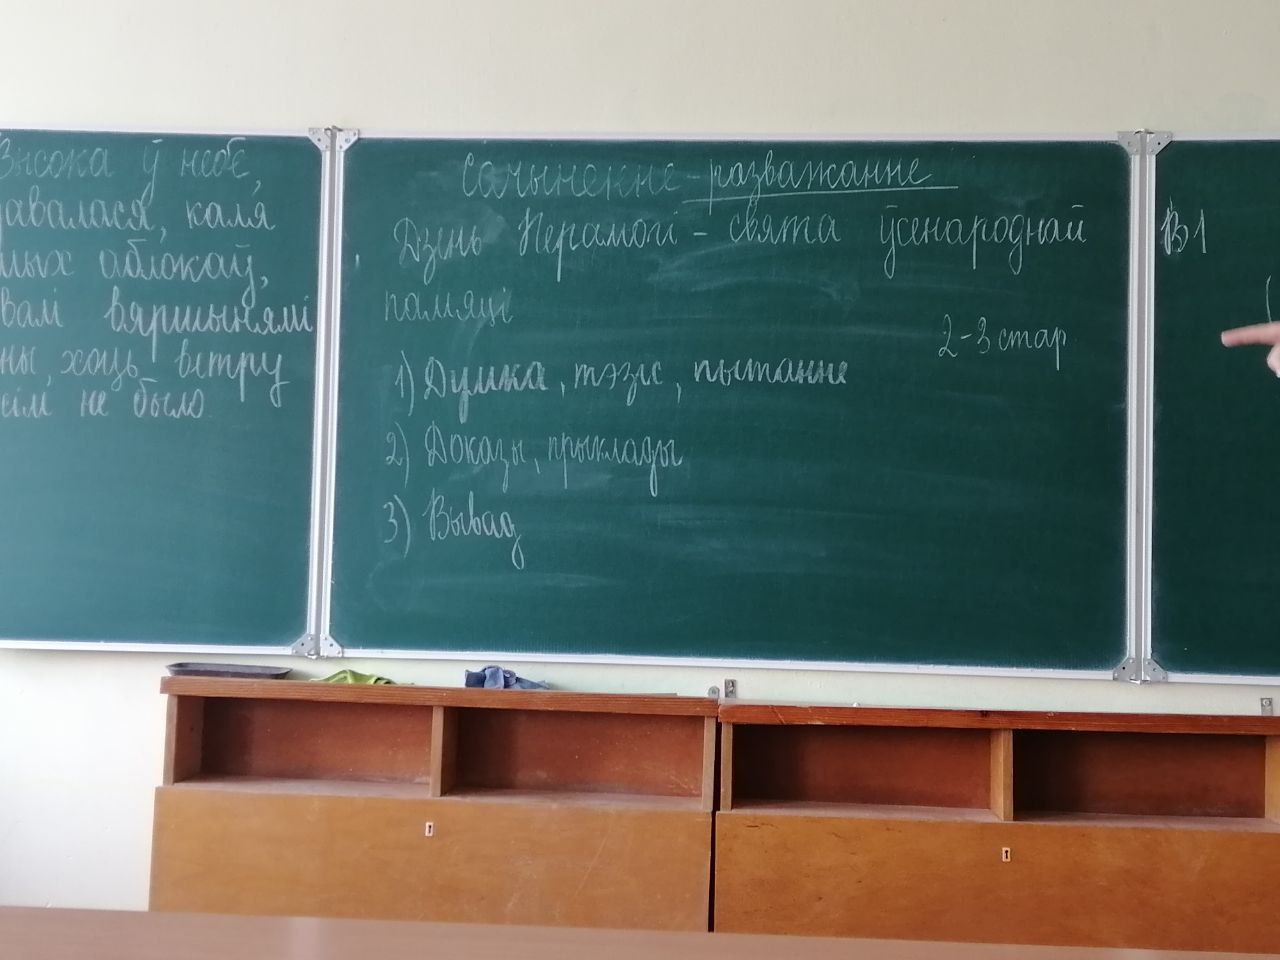 Высока ў небе,
давалася, каля
лых аблокаў,
вамі вяршынямі
ны, хоць ветру
сім не было.
Сачыненне-разважанне
Дзень Перамогі - свята ўсенароднай
памяці
2-3 стар
1) Думка, тэзіс, пытанне
2) Доказы, прыклады
3) Вывад
В1